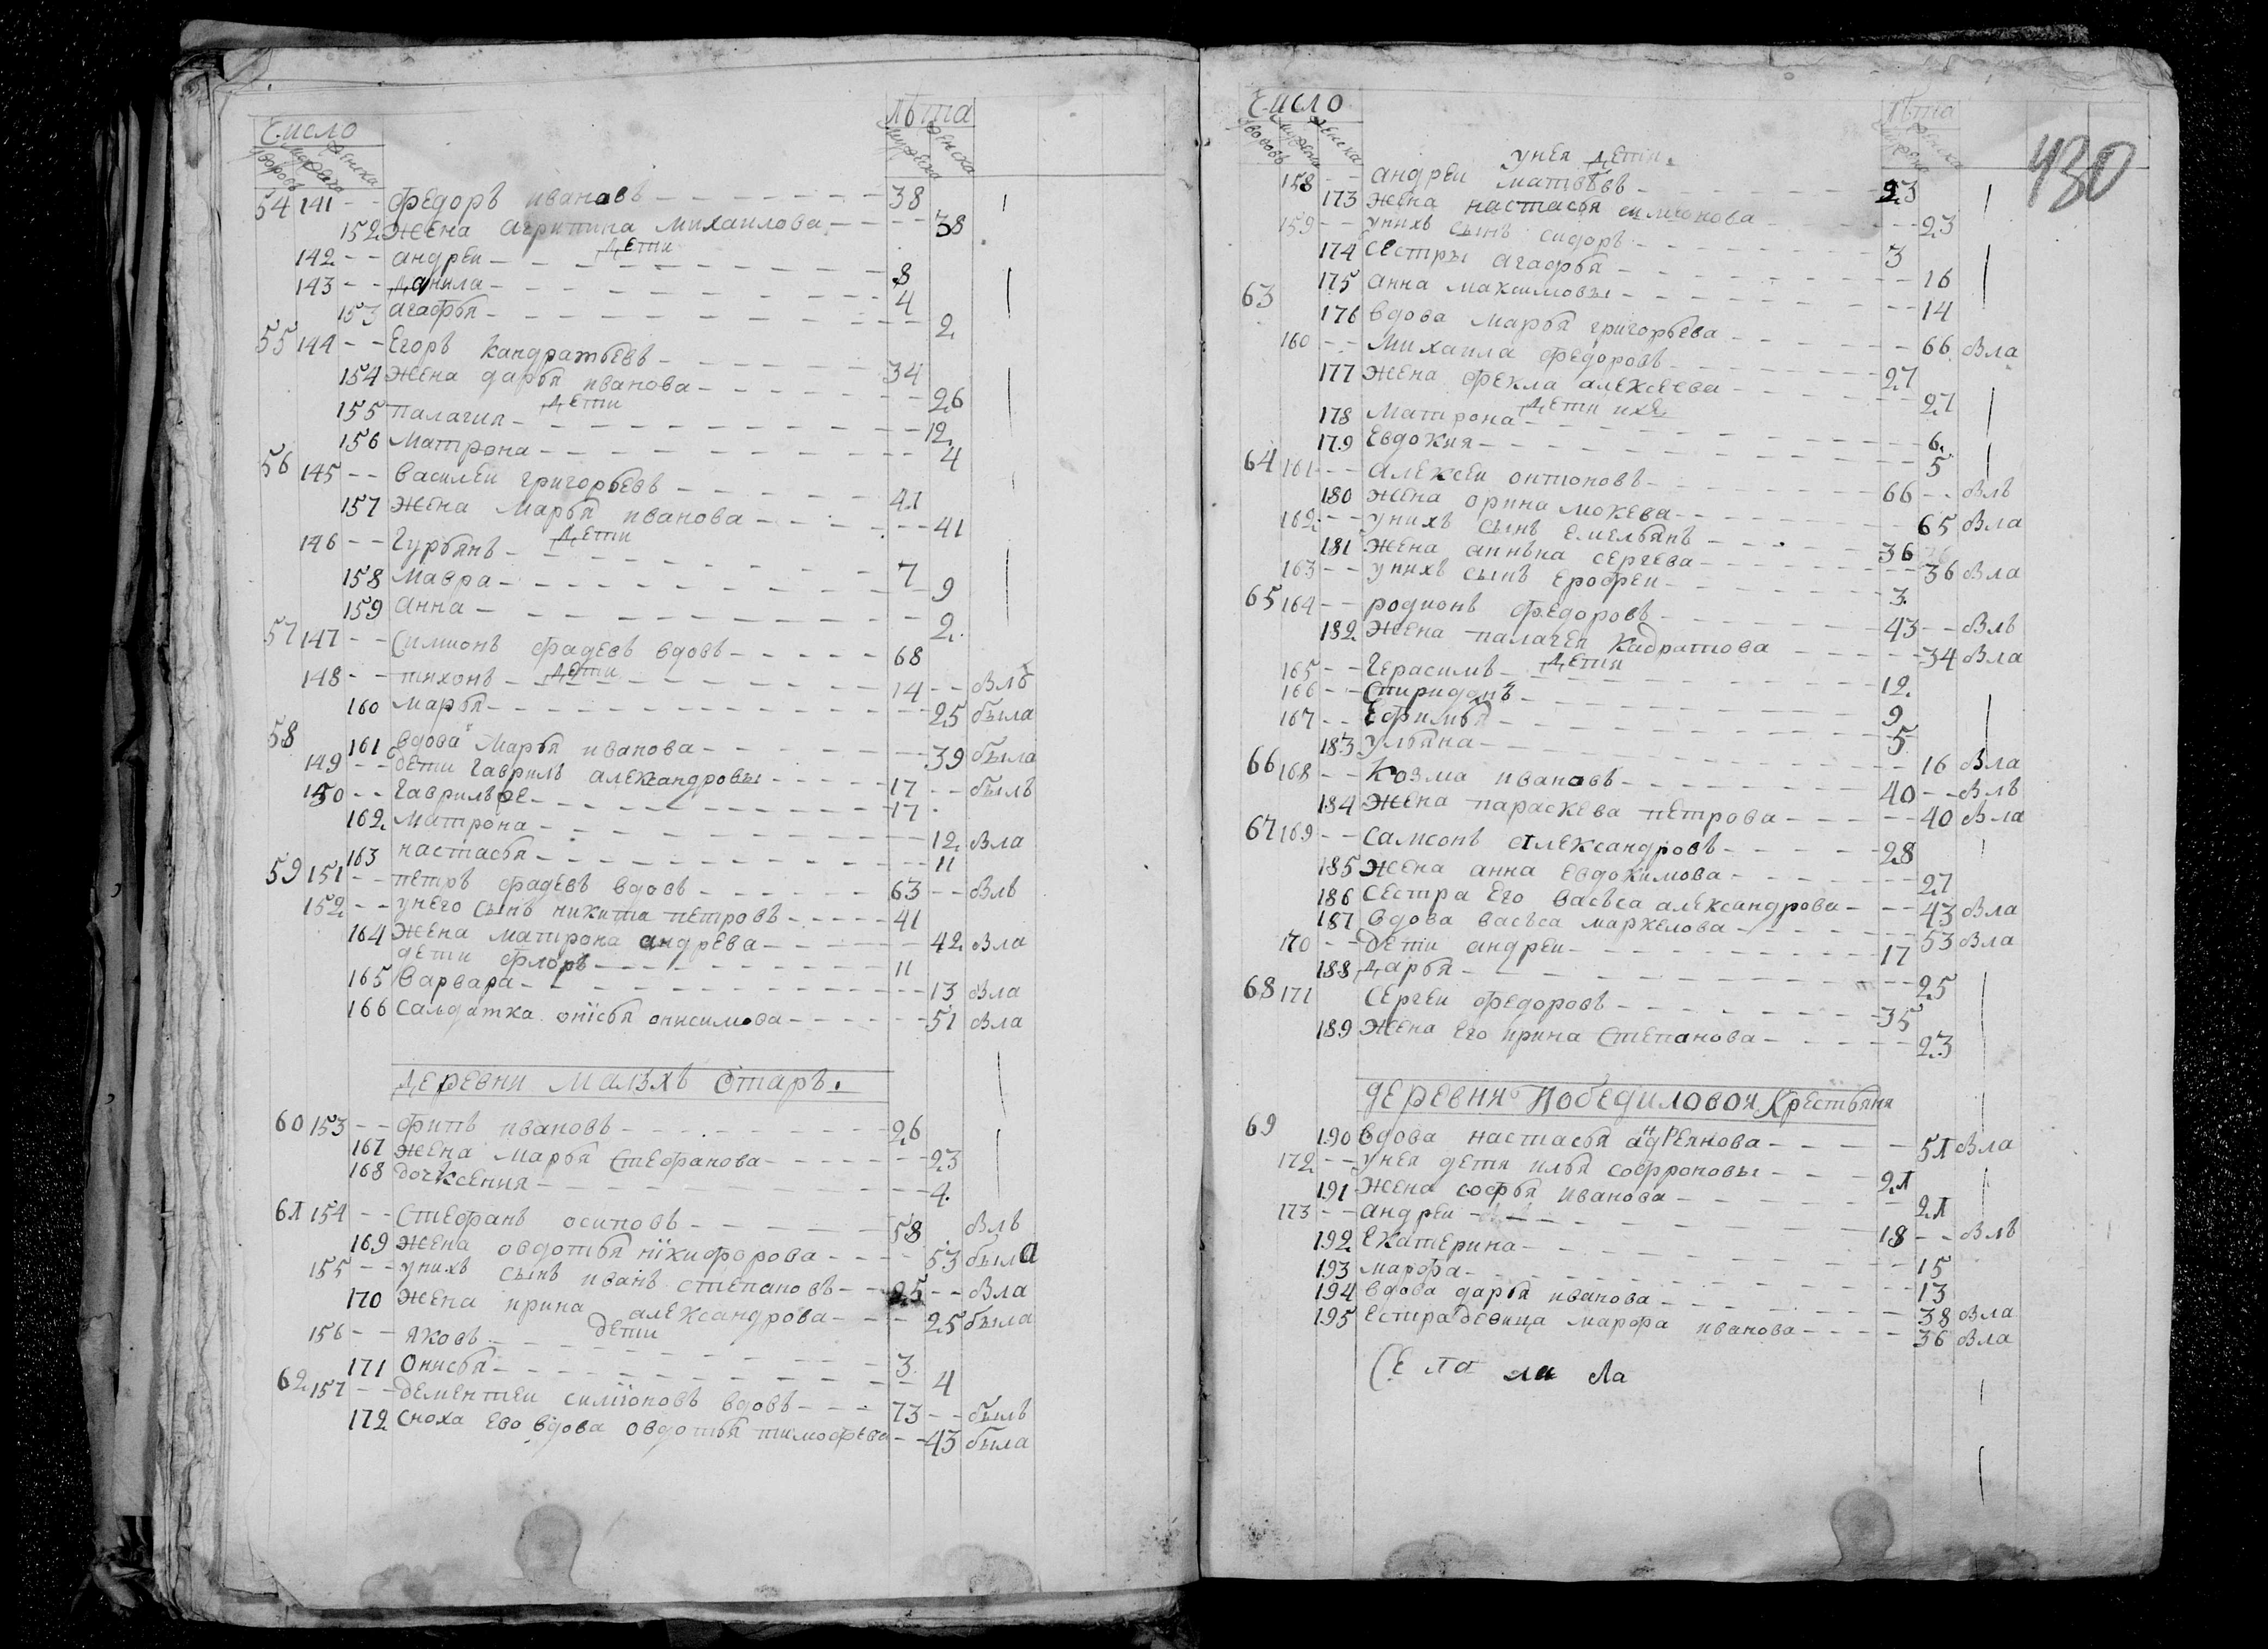 Число
Лѣта
дворовъ мужеска женска
мужеска женска
54 141 -- федоръ ивановъ - 38
152 жена агрипина михаилова - 38
дети
142 -- андреи - 8
143 -- данила - 4
153 агафья - 2
55 144 -- Егоръ кандратьевъ - 34
154 жена дарья иванова - 26
дети
155 палагия - 12
156 матрона - 4
56 145 -- василеи григорьевъ - 41
157 жена марья иванова - 41
дети
146 -- гурьянъ - 7
158 мавра - 9
159 анна - 2
57 147 -- симионъ фадеевъ вдовъ - 68
дети
148 -- тихонъ - 14 -- Влъ
160 марья - 25 была
58 161 вдова марья иванова - 39 была
149 -- дети гаврилъ александровы - 17 -- былъ
150 -- гаврилъ же - 17
162 матрона - 12 Вла
163 настасья - 11
59 151 -- петръ фадевъ вдовъ - 63 -- Влъ
152 -- унего сынъ никита петровъ - 41
164 жена матрона андрева - 42 Вла
дети флоръ - 11
165 варвара - 13 Вла
166 салдатка онисья онисимова - 51 Вла
деревни малѣхъ Старъ.
60 153 -- филъ ивановъ - 26
167 жена марья стефанова - 23
168 доч ксения - 4
61 154 -- стефанъ осиповъ - 58 Влъ
169 жена овдотья никифорова - 53 была
155 -- унихъ сынъ иванъ степановъ - 25 -- Вла
170 жена ирина александрова - 25 была
дети
156 -- яковъ - 3
171 онисья - 4
62 157 -- дементеи симионовъ вдовъ - 73 -- былъ
172 сноха ево вдова овдотья тимофева - 43 была
Число
Лѣта
430
дворовъ мужеска женска
мужеска женска
унея дети
158 -- андреи матвѣвъ - 23
173 жена настасья симионова - 23
159 -- унихъ сынъ сидоръ - 3
174 сестры агафья - 16
175 анна максимовы - 14
63 176 вдова марья григорьева - 66 Вла
160 -- михаила федоровъ - 27
177 жена фекла алексеева - 27
дети ихъ
178 матрона - 6
179 Евдокия - 5
64 161 -- алексеи онтоновъ - 66 -- Влъ
180 жена орина мокева - 65 Вла
162 -- унихъ сынъ емельянъ - 36
181 жена аннъна сергева - 36 Вла
163 -- унихъ сынъ ерофеи - 3
65 164 -- родионъ федоровъ - 43 -- Влъ
182 жена палагея кадратова - 34 Вла
дети
165 -- герасимъ - 12
166 -- спиридонъ - 9
167 -- Ефимья - 5
183 ульяна - 16 Вла
66 168 -- козма ивановъ - 40 -- Влъ
184 жена параскева петрова - 40 Вла
67 169 -- самсонъ александровъ - 28
185 жена анна евдокимова - 27
186 сестра его васъса александрова - 43 Вла
187 вдова васъса маркелова - 53 Вла
170 -- дети андреи - 17
188 дарья - 25
68 171 сергеи федоровъ - 35
189 жена его ирина степанова - 23
деревня Победиловоя крестьяня
69 190 вдова настасья андреянова - 51 Вла
172 -- унея детя илья софроновы - 21
191 жена софья иванова - 21
173 -- андреи - 18 -- Влъ
192 екатерина - 15
193 марфа - 13
194 вдова дарья иванова - 38 Вла
195 сестра девица марфа иванова - 36 Вла